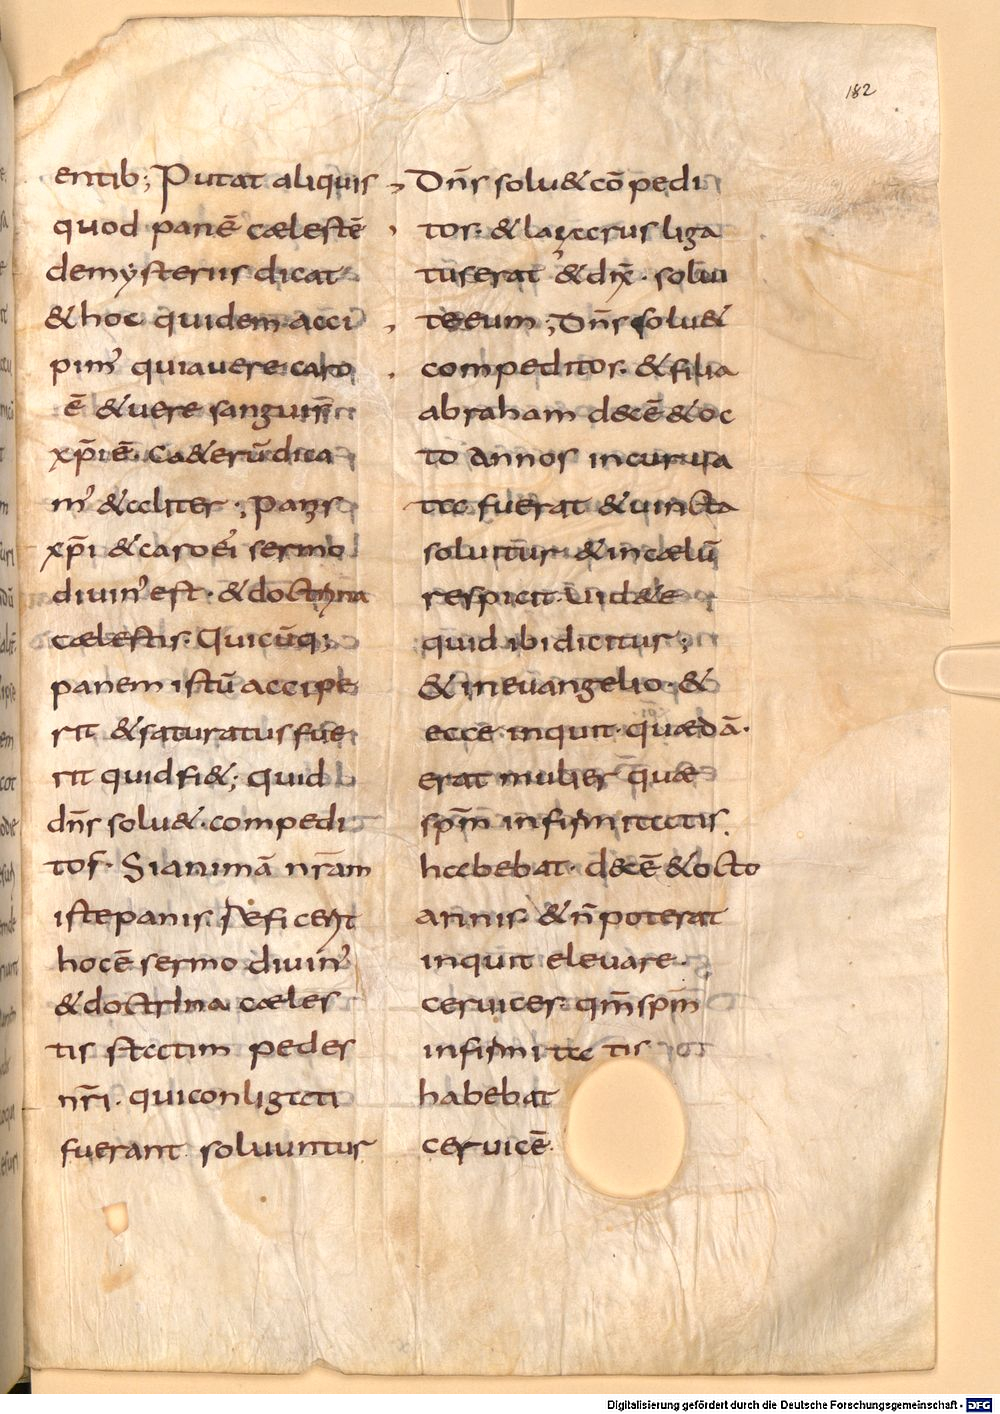 182
entib; Putat aliquis
quod panē cælestē
demysteriis dicat
& hoc quidem acci
pim' quia uere caro
ē & uere sanguis
xp̄i ē. Cod&erū dica
m' & aliter; Panis
xp̄i & caro ei' sermo
diuin' est. & doctrina
cælestis. Quicūq;
panem istū accipe
rit & saturatus fue
rit quid fi&; quid
dn̄s solu& compedi
tos. Si animā nr̄am
iste panis reficerit
hoc ē sermo diuin'
& doctrina cæles
tis statim pedes
nr̄i. qui conligati
fuerant soluuntur
Dn̄s solu& cō pedi
tos. & lazarus liga
tus erat & dix̄. solui
te eum; Dn̄s solu&
compeditos. & filia
abraham decē & oc
to annos incurua
ta fuerat & uincta
soluitur & in cælū
respicit. Uid&e
quid ibi dicitur;
& in euangelio. &
ecce inquit quædā.
erat mulier quæ
sp̄m infirmitatis
habebat. decē & octo
annis. & n̄ poterat
inquit eleuare.
ceruices. qm̄ sp̄m
infirmitatis
habebat
ceruicē.
Digitalisierung gefördert durch die Deutsche Forschungsgemeinschaft - DFG